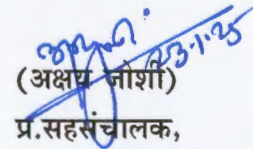 23.1.25
(अक्षय जोशी)
प्र.सहसंचालक,